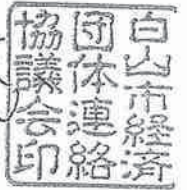 白山市経済
団体連絡
協議会印